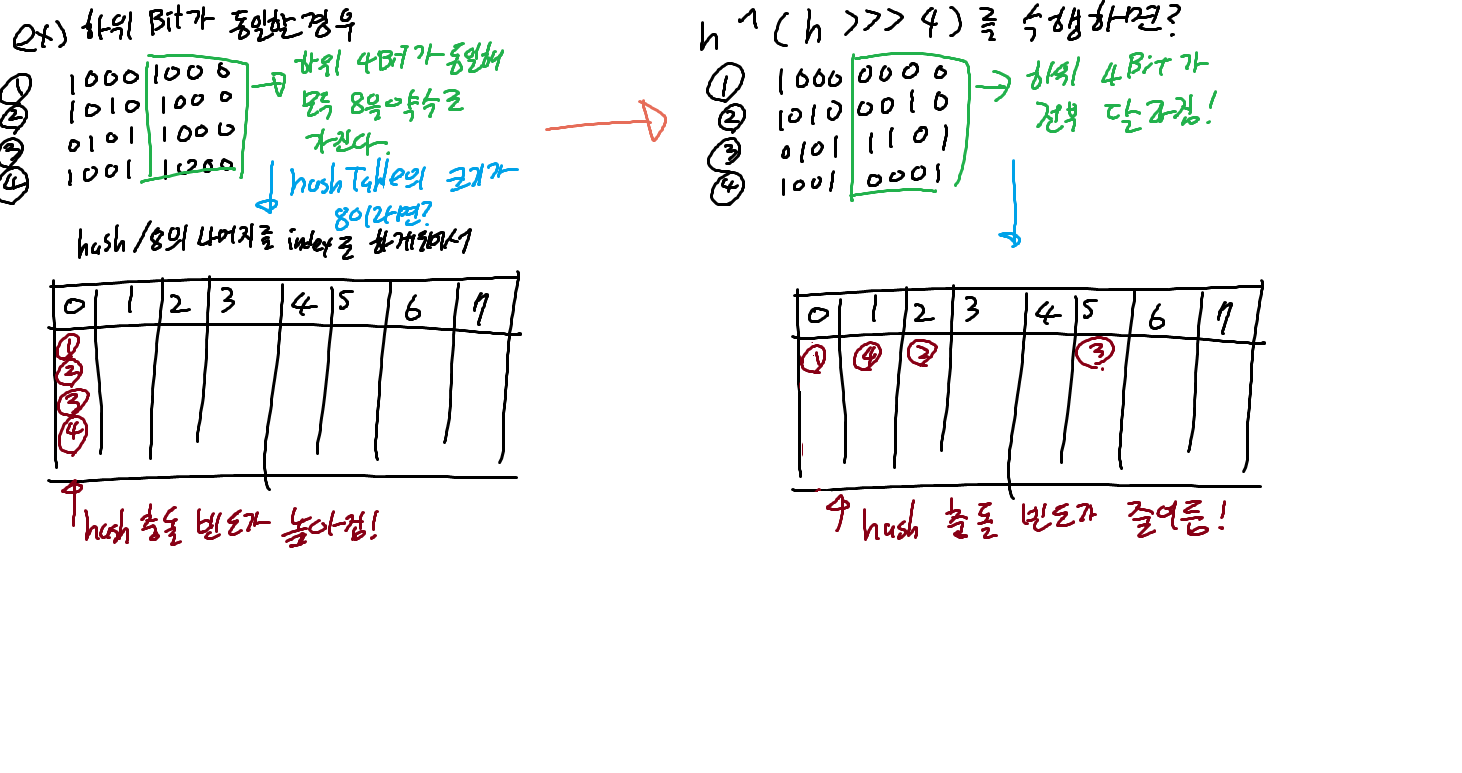 ex) 하위 Bit가 동일한 경우
① 1000 1000
② 1010 1000
③ 0101 1000
④ 1001 1000
하위 4Bit가 동일해
모두 8을 약수로
가진다.
hashTable의 크기가
8이라면?
hash/8의 나머지를 index로 하게되어서
0 1 2 3 4 5 6 7
①
②
③
④
hash 충돌 빈도가 높아짐!
h ^ (h >>> 4) 를 수행하면?
① 1000 0000
② 1010 0010
③ 0101 1101
④ 1001 0001
하위 4Bit가
전부 달라짐!
0 1 2 3 4 5 6 7
① ④ ② ③
hash 충돌 빈도가 줄어듦!